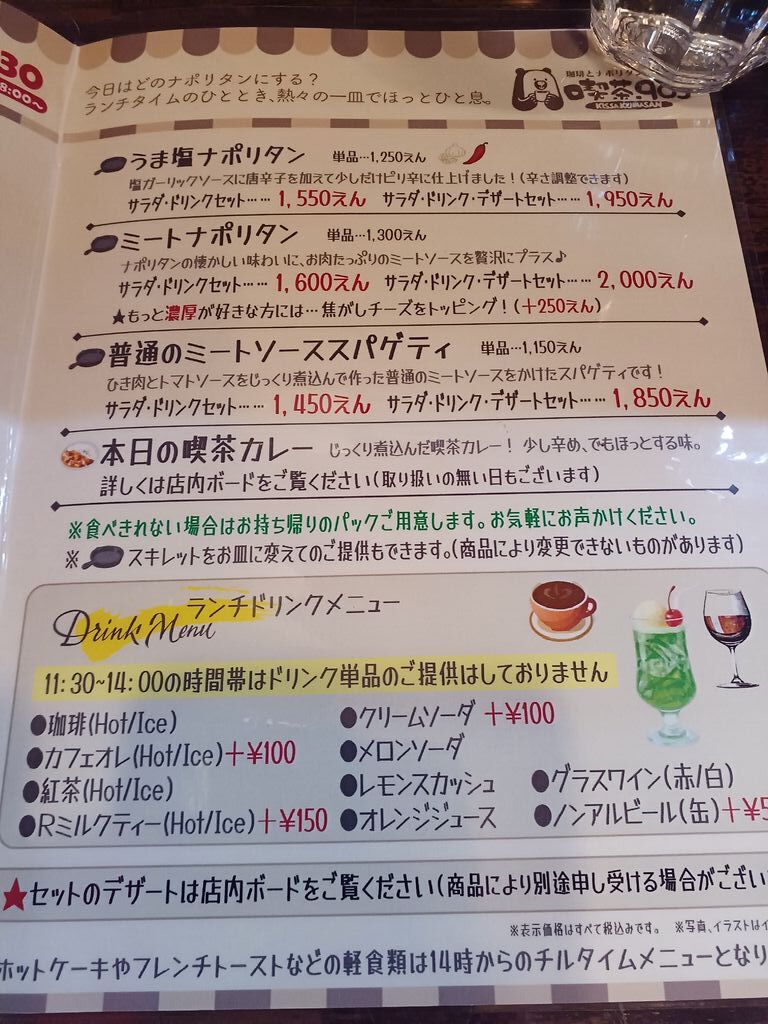 30
8:00~)
今日はどのナポリタンにする?
ランチタイムのひととき、熱々の一皿でほっとひと息。
珈琲とナポリタン
喫茶
KISSA KUMASAN
うま塩ナポリタン 単品…1,250えん
塩ガーリックソースに唐辛子を加えて少しだけピリ辛に仕上げました!(辛さ調整できます)
サラダ・ドリンクセット…… 1,550えん サラダ・ドリンク・デザートセット…… 1,950えん
ミートナポリタン 単品…1,300えん
ナポリタンの懐かしい味わいに、お肉たっぷりのミートソースを贅沢にプラス♪
サラダ・ドリンクセット…… 1,600えん サラダ・ドリンク・デザートセット…… 2,000えん
★もっと濃厚が好きな方には… 焦がしチーズをトッピング!(+250えん)
普通のミートソーススパゲティ 単品…1,150えん
ひき肉とトマトソースをじっくり煮込んで作った普通のミートソースをかけたスパゲティです!
サラダ・ドリンクセット…… 1,450えん サラダ・ドリンク・デザートセット…… 1,850えん
本日の喫茶カレー じっくり煮込んだ喫茶カレー! 少し辛め、でもほっとする味。
詳しくは店内ボードをご覧ください(取り扱いの無い日もございます)
※食べきれない場合はお持ち帰りのパックご用意します。お気軽にお声かけください。
※ スキレットをお皿に変えてのご提供もできます。(商品により変更できないものがあります)
Drink Menu ランチドリンクメニュー
11:30~14:00の時間帯はドリンク単品のご提供はしておりません
●珈琲(Hot/Ice)
●カフェオレ(Hot/Ice)+¥100
●紅茶(Hot/Ice)
●Rミルクティー(Hot/Ice)+¥150
●クリームソーダ +¥100
●メロンソーダ
●レモンスカッシュ
●オレンジジュース
●グラスワイン(赤/白)
●ノンアルビール(缶)+¥5
★セットのデザートは店内ボードをご覧ください(商品により別途申し受ける場合がござい
※表示価格はすべて税込みです。 ※写真、イラストはイ
ホットケーキやフレンチトーストなどの軽食類は14時からのチルタイムメニューとなり